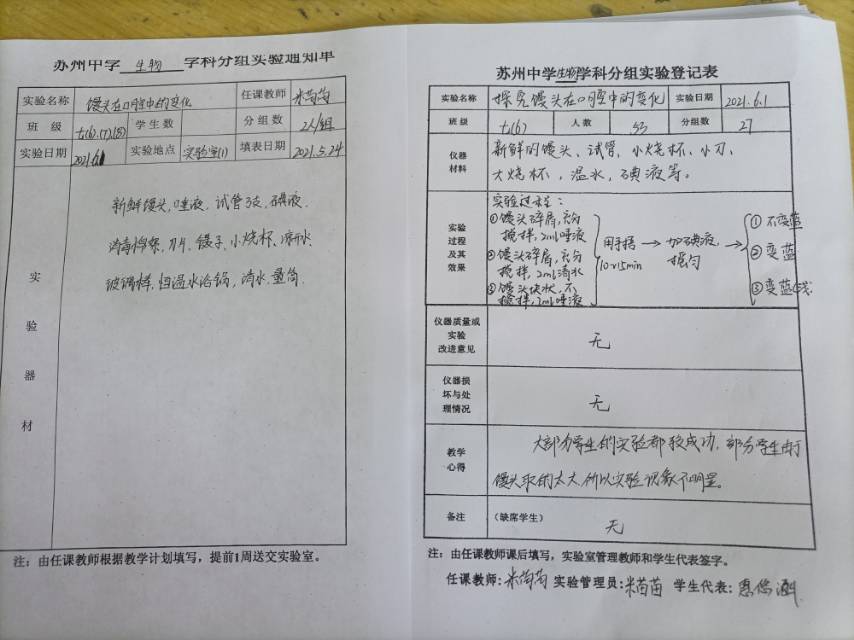 苏州中学 生物 学科分组实验通知单
实验名称 馒头在口腔中的变化 任课教师 米苗苗
班 级 七(6).(7).(8) 学生数 分组数 2人/组
实验日期 2021.6.1 实验地点 实验室(1) 填表日期 2021.5.24
实验器材
新鲜馒头,唾液,试管3支,碘液,
消毒棉絮,刀片,镊子,小烧杯,凉开水
玻璃棒,恒温水浴锅,清水,量筒
注:由任课教师根据教学计划填写,提前1周送交实验室。
苏州中学生物学科分组实验登记表
实验名称 探究馒头在口腔中的变化 实验日期 2021.6.1
班 级 七(6) 人 数 53 分组数 27
仪器材料
新鲜的馒头、试管、小烧杯、小刀、
大烧杯,温水,碘液等。
实验过程及其效果
实验过程:
①馒头碎屑,充分
搅拌,2ml唾液
②馒头碎屑,充分
搅拌,2ml清水
③馒头块状,不
搅拌,2ml唾液
10~15min
→加碘液
摇匀
→
①不变蓝
②变蓝
③变蓝
仪器质量或实验改进意见 无
仪器损坏与处理情况 无
教学心得
大部分学生的实验都较成功,部分学生由于
馒头取的太大,所以实验现象不明显。
备注 (缺席学生) 无
注:由任课教师课后填写,实验室管理教师和学生代表签字。
任课教师:米苗苗 实验管理员:米苗苗 学生代表: